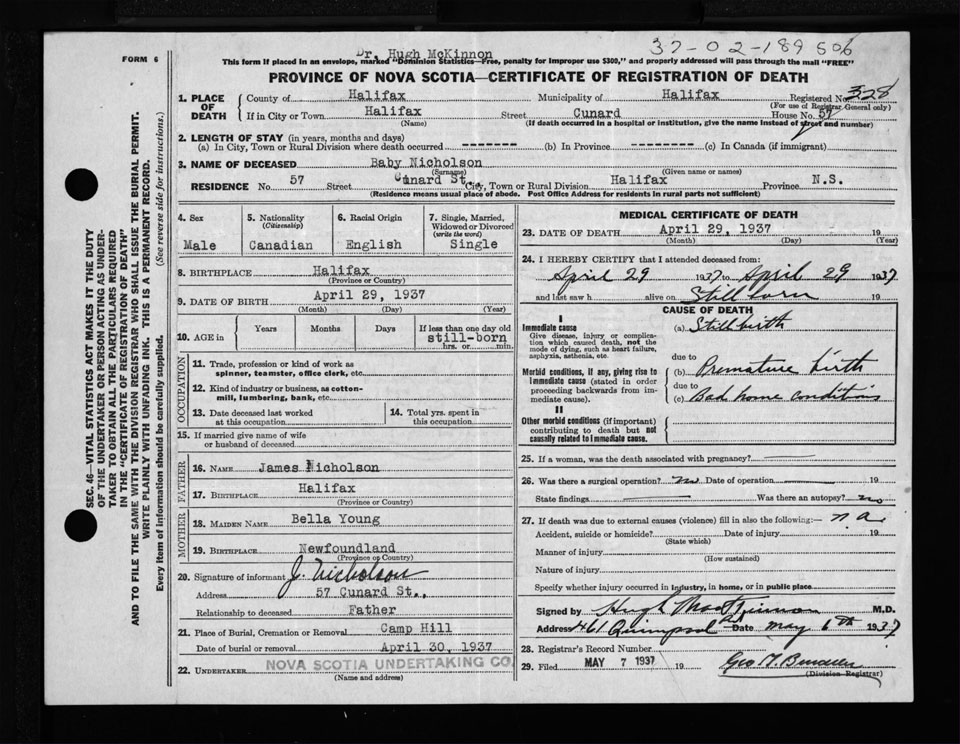 FORM 6
Dr. Hugh McKinnon
37-02-189506
This form if placed in an envelope, marked "Dominion Statistics—Free, penalty for improper use $300," and properly addressed will pass through the mail "FREE"
PROVINCE OF NOVA SCOTIA—CERTIFICATE OF REGISTRATION OF DEATH
1. PLACE OF DEATH
County of Halifax Municipality of Halifax Registered No. 328
(For use of Registrar-General only)
If in City or Town Halifax Street Cunard House No. 57
(Name) (If death occurred in a hospital or institution, give the name instead of street and number)
2. LENGTH OF STAY (in years, months and days)
(a) In City, Town or Rural Division where death occurred -------- (b) In Province --------- (c) In Canada (if immigrant)
3. NAME OF DECEASED Baby Nicholson
(Surname) (Given name or names)
RESIDENCE No. 57 Street Cunard St., City, Town or Rural Division Halifax Province N.S.
(Residence means usual place of abode. Post Office Address for residents in rural parts not sufficient)
4. Sex Male
5. Nationality (Citizenship) Canadian
6. Racial Origin English
7. Single, Married, Widowed or Divorced (write the word) Single
8. BIRTHPLACE Halifax
(Province or Country)
9. DATE OF BIRTH April 29, 1937
(Month) (Day) (Year)
10. AGE in Years Months Days If less than one day old
still-born
hrs. or min.
OCCUPATION
11. Trade, profession or kind of work as
spinner, teamster, office clerk, etc.
12. Kind of industry or business, as cotton-
mill, lumbering, bank, etc.
13. Date deceased last worked
at this occupation
14. Total yrs. spent in
this occupation
15. If married give name of wife
or husband of deceased
FATHER
16. NAME James Nicholson
17. BIRTHPLACE Halifax
(Province or Country)
MOTHER
18. MAIDEN NAME Bella Young
19. BIRTHPLACE Newfoundland
(Province or Country)
20. Signature of informant J. Nicholson
Address 57 Cunard St.,
Relationship to deceased Father
21. Place of Burial, Cremation or Removal Camp Hill
Date of burial or removal April 30, 1937
22. UNDERTAKER NOVA SCOTIA UNDERTAKING CO.
(Name and address)
MEDICAL CERTIFICATE OF DEATH
23. DATE OF DEATH April 29, 1937 19
(Month) (Day) (Year)
24. I HEREBY CERTIFY that I attended deceased from:
April 29 1937 to April 29 1937
and last saw h alive on Still born 19
CAUSE OF DEATH
I
Immediate cause
Give disease, injury or complica-
tion which caused death, not the
mode of dying, such as heart failure,
asphyxia, asthenia, etc.
(a) Stillbirth
due to
Morbid conditions, if any, giving rise to
Immediate cause (stated in order
proceeding backwards from im-
mediate cause).
(b) Premature birth
due to
(c) Bad home conditions
II
Other morbid conditions (if important)
contributing to death but not
causally related to Immediate cause.
25. If a woman, was the death associated with pregnancy?
26. Was there a surgical operation? no Date of operation 19
State findings Was there an autopsy? no
27. If death was due to external causes (violence) fill in also the following:— n.a.
Accident, suicide or homicide? Date of injury 19
(State which)
Manner of injury
(How sustained)
Nature of injury
Specify whether injury occurred in industry, in home, or in public place
Signed by Hugh MacKinnon M.D.
Address 461 Quinpool Rd Date May 6th 1937
28. Registrar's Record Number
29. Filed MAY 7 1937 19
(Division Registrar)
SEC. 46—VITAL STATISTICS ACT MAKES IT THE DUTY
OF THE UNDERTAKER OR PERSON ACTING AS UNDER-
TAKER TO OBTAIN ALL THE PARTICULARS REQUIRED
IN THE "CERTIFICATE OF REGISTRATION OF DEATH"
AND TO FILE THE SAME WITH THE DIVISION REGISTRAR WHO SHALL ISSUE THE BURIAL PERMIT.
WRITE PLAINLY WITH UNFADING INK. THIS IS A PERMANENT RECORD.
Every item of information should be carefully supplied. (See reverse side for instructions.)